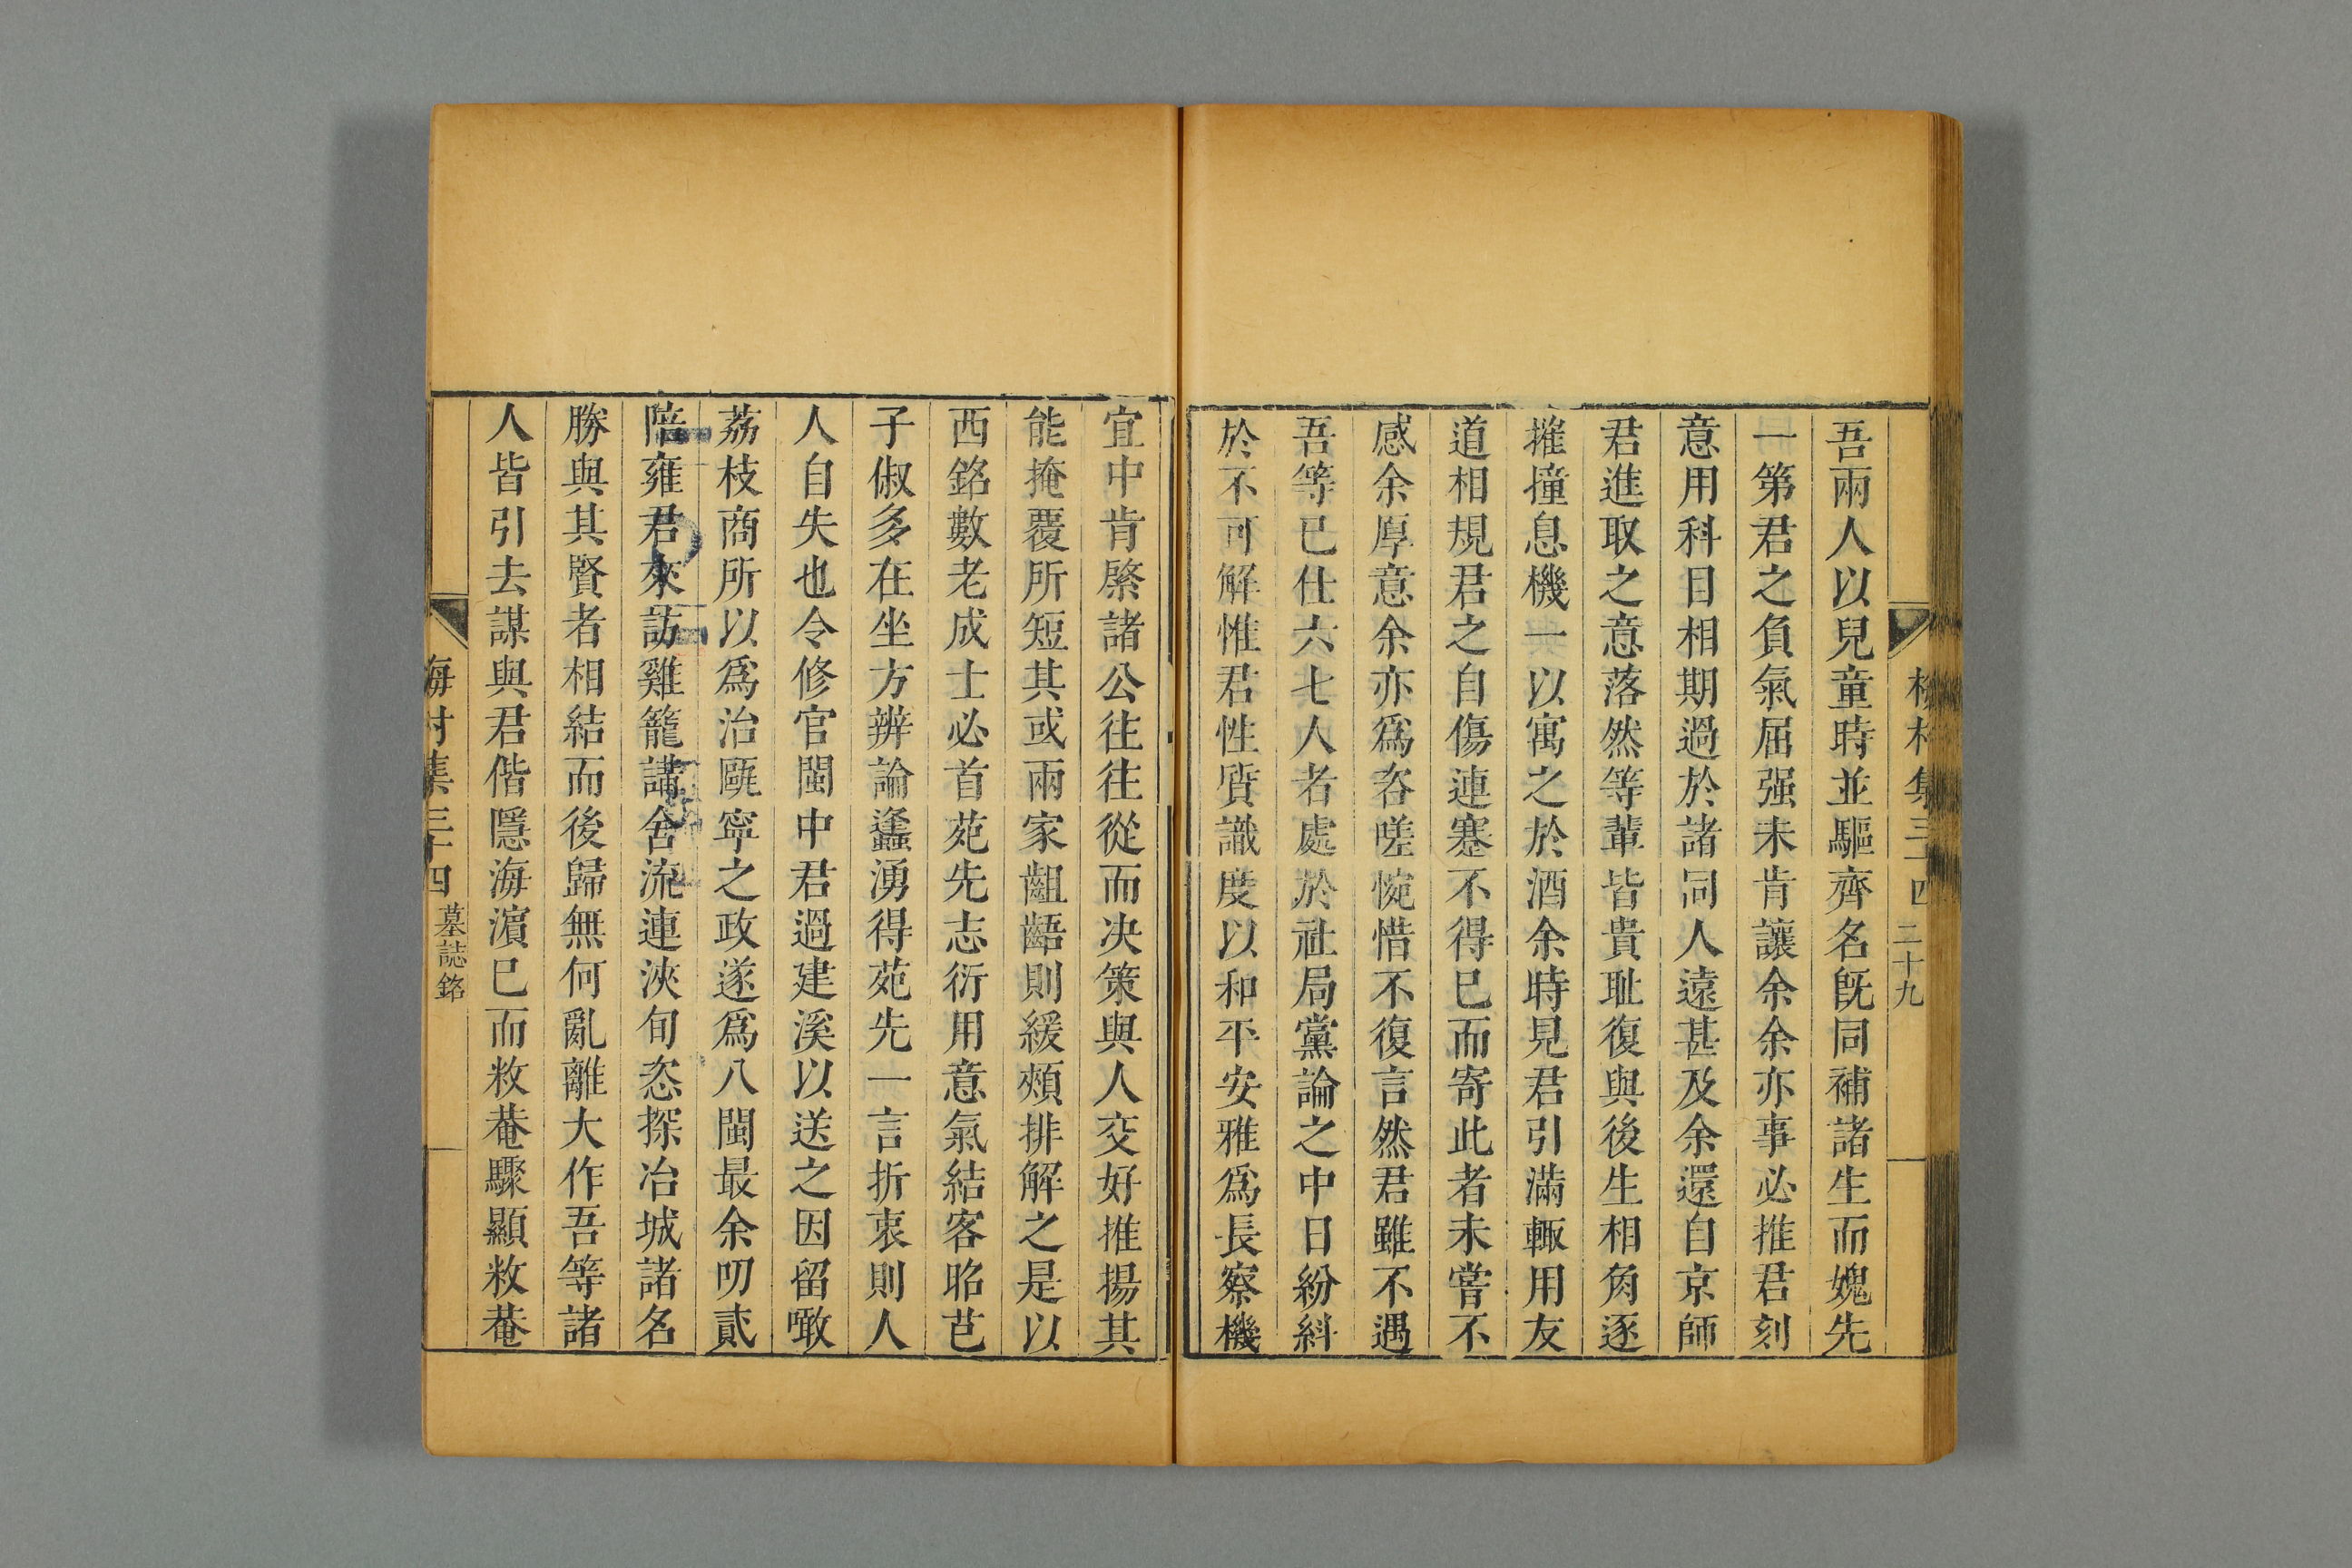 集三四 二十九
吾兩人以兒童時並驅齊名旣同補諸生而媿先
一第君之負氣屈强未肯讓余余亦事必推君刻
意用科目相期過於諸同人遠甚及余還自京師
君進取之意落然等輩皆貴耻復與後生相角逐
摧撞息機一以寓之於酒余時見君引滿輙用友
道相規君之自傷連蹇不得已而寄此者未嘗不
感余厚意余亦爲咨嗟惋惜不復言然君雖不遇
吾等已仕六七人者處於社局黨論之中日紛糾
於不可解惟君性質識度以和平安雅爲長察機
宜中肯綮諸公往往從而决策與人交好推揚其
能掩覆所短其或兩家齟齬則緩頰排解之是以
西銘數老成士必首苑先志衍用意氣結客昭芑
子俶多在坐方辨論蠭湧得苑先一言折衷則人
人自失也令修官閩中君過建溪以送之因留噉
荔枝商所以爲治甌寧之政遂爲八閩最余叨貳
陪雍君來訪雞籠講舍流連浹旬恣探冶城諸名
勝與其賢者相結而後歸無何亂離大作吾等諸
人皆引去謀與君偕隱海濵巳而敉菴驟顯敉菴
海村集三十四 墓誌銘